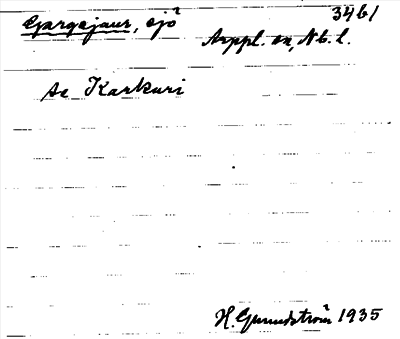 Gargejaur, sjö 3461
Arppl. sn, Nb. l.
se Karkuri
H. Grundström 1935